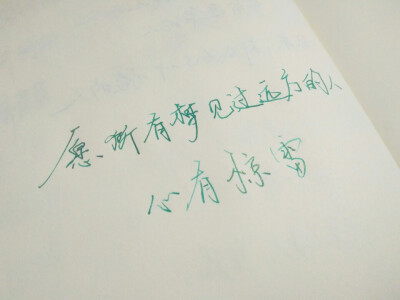 愿、所有梦见过远方的人
心有惊雷